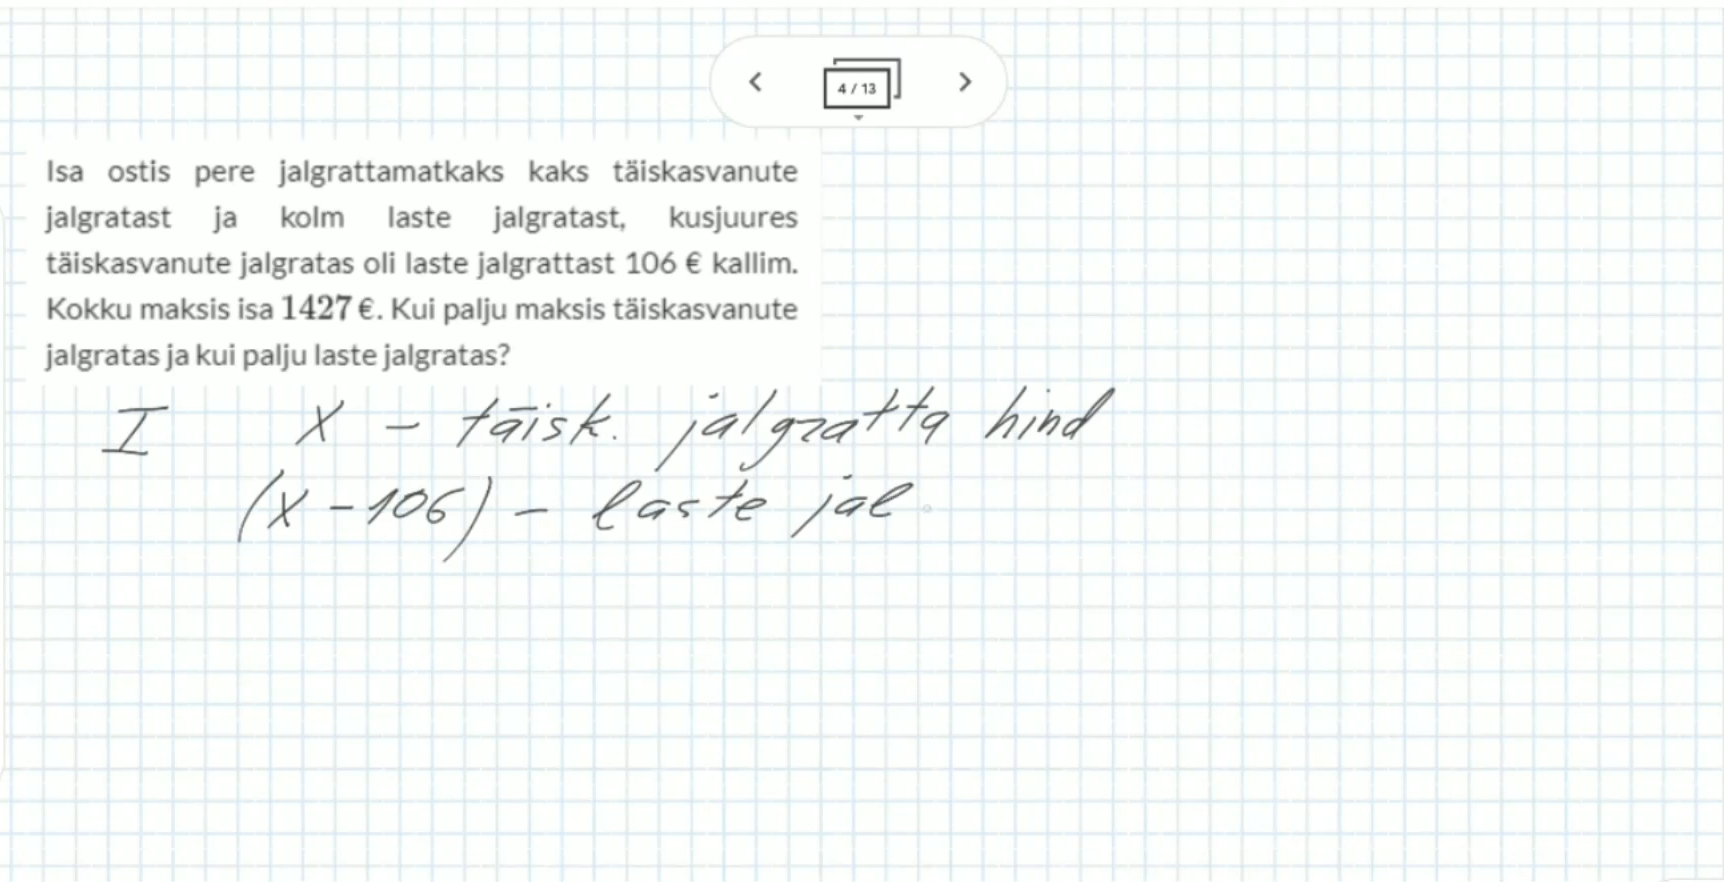 4 / 13
Isa ostis pere jalgrattamatkaks kaks täiskasvanute
jalgratast ja kolm laste jalgratast, kusjuures
täiskasvanute jalgratas oli laste jalgrattast 106 € kallim.
Kokku maksis isa 1427 €. Kui palju maksis täiskasvanute
jalgratas ja kui palju laste jalgratas?
I x - täisk. jalgratta hind
(x - 106) - laste jal